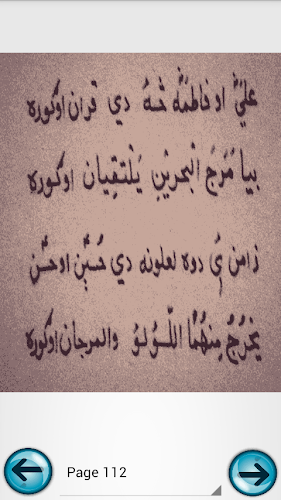 علیؓ او فاطمهؓ څه دي قران اوګوره
بیا مَرَجَ الْبَحْرَیْنِ یَلْتَقِیَان اوګوره
زامن ئ دوه لعلونه دي حُسَیْن او حسن
یَخْرُجُ مِنْهُمَا اللُّؤلؤ والمرجان اوګوره
Page 112